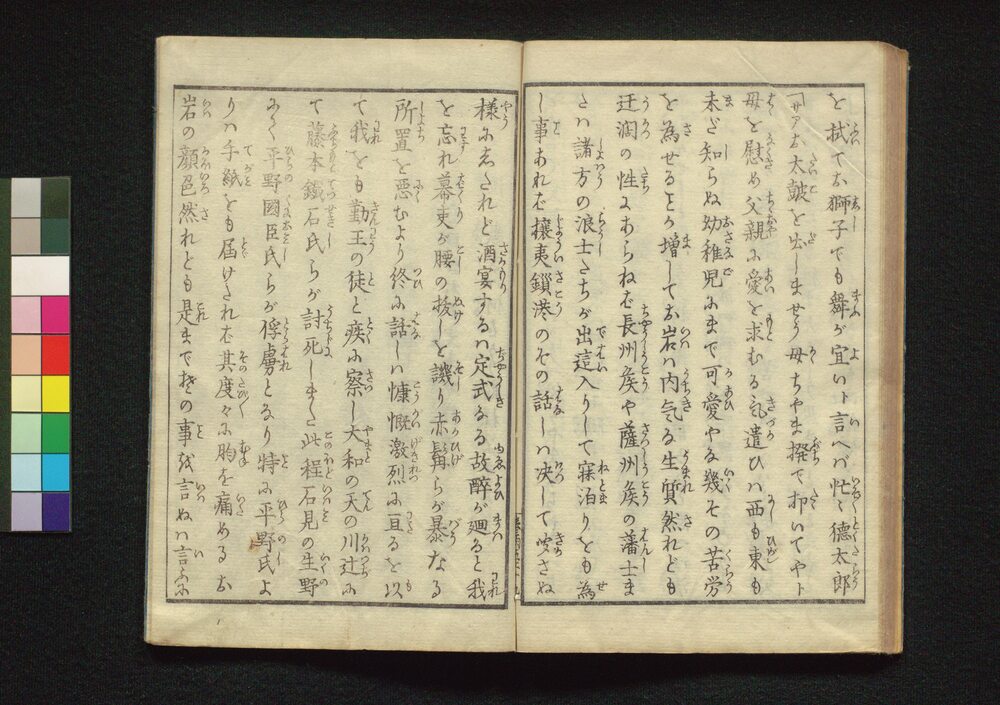 を拭てお獅子でも舞が宜いト言へバ忙〻德太郎
「サアお太皷を出しませう母ちやま撥で抑いてやト
母を慰め父親に愛を求むる気遣ひハ西も東も
未だ知らぬ幼稚児にまで可愛やな幾その苦労
を為せることか増してお岩ハ内気なる生質然れども
迂濶の性にあらねば長州侯や薩州侯の藩士ま
たハ諸方の浪士たちが出這入りして寐泊りをも為
し事あれば攘夷鎖港のその話しハ决して聞さぬ
様にしたれど酒宴するハ定式なる故醉が廻ると我
を忘れ幕吏が腰の抜しを譏り赤髯らが暴なる
所置を悪むより終に話しハ慷慨激烈に亘るを以
て我をも勤王の徒と疾に察し大和の天の川辻に
て藤本鐵石氏らが討死しまた此程石見の生野
にて平野國臣氏らが俘虜となり特に平野氏よ
りハ手紙をも届けたれば其度々に胸を痛めるお
岩の顔色然れども是まで其の事を言ぬハ言ふに